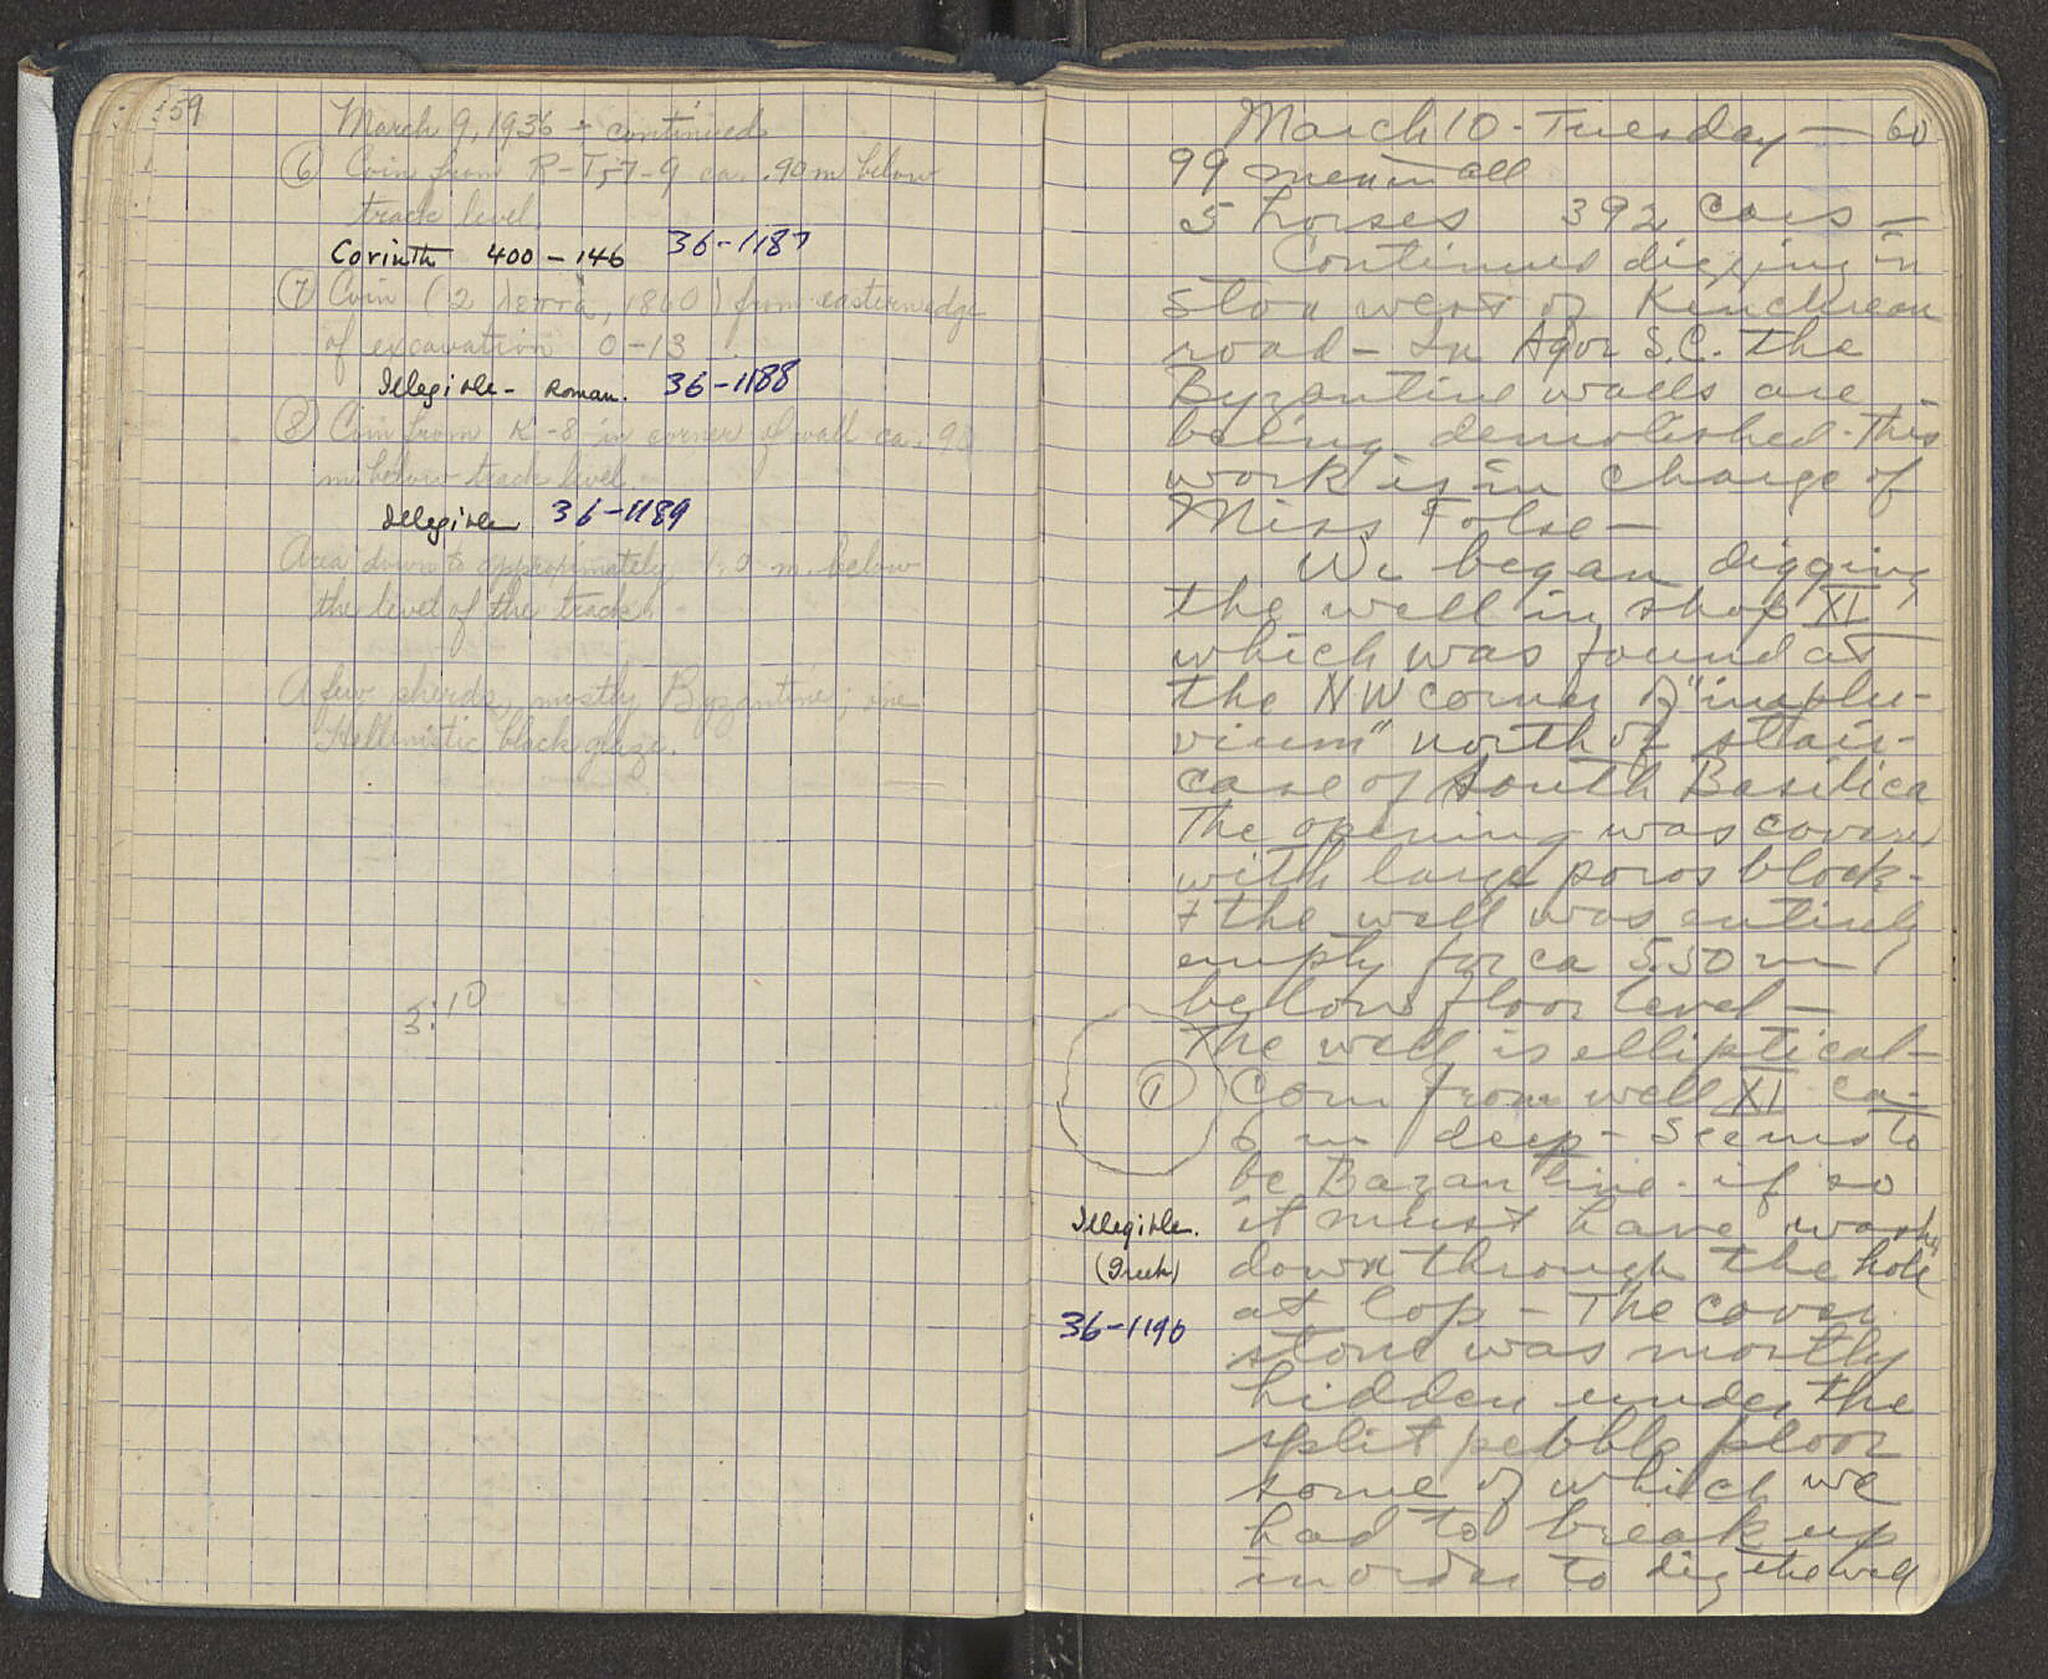 59
March 9, 1936 - continued
⑥ Coin from R-T; 7-9 ca. .90m below
track level.
Corinth 400 - 146 36-1187
⑦ Coin (2 λεπτά, 18 0) from eastern edge
of excavation O-13
Illegible - Roman. 36-1188
⑧ Coin from K-8 in corner of wall ca. 9
m. below track level.
Illegible 36-1189
Area down to approximately m. below
the level of the track.
A few sherds, mostly Byzantine; one
Hellenistic black glaze.
3:10
March 10 - Tuesday — 60
99 men in all
5 horses 392 cars —
Continued digging in
stoa west of Kenchrean
road - In Agor S.C. the
Byzantine walls are
being demolished - This
work is in charge of
Miss Folse —
We began digging
the well in shop XI
which was found at
the NW corner of "implu-
vium" north of stair-
case of South Basilica
The opening was covered
with large poros block -
+ the well was entirely
empty for ca 5.50 m
below floor level —
The well is elliptical —
① Coin from well XI ca.
6 m deep - Seems to
be Bazantine - if so
it must have washed
down through the hole
at top - The cover
stone was mostly
hidden under the
split pebble floor
some of which we
had to break up
in order to dig the well
Illegible.
(Greek)
36-1190